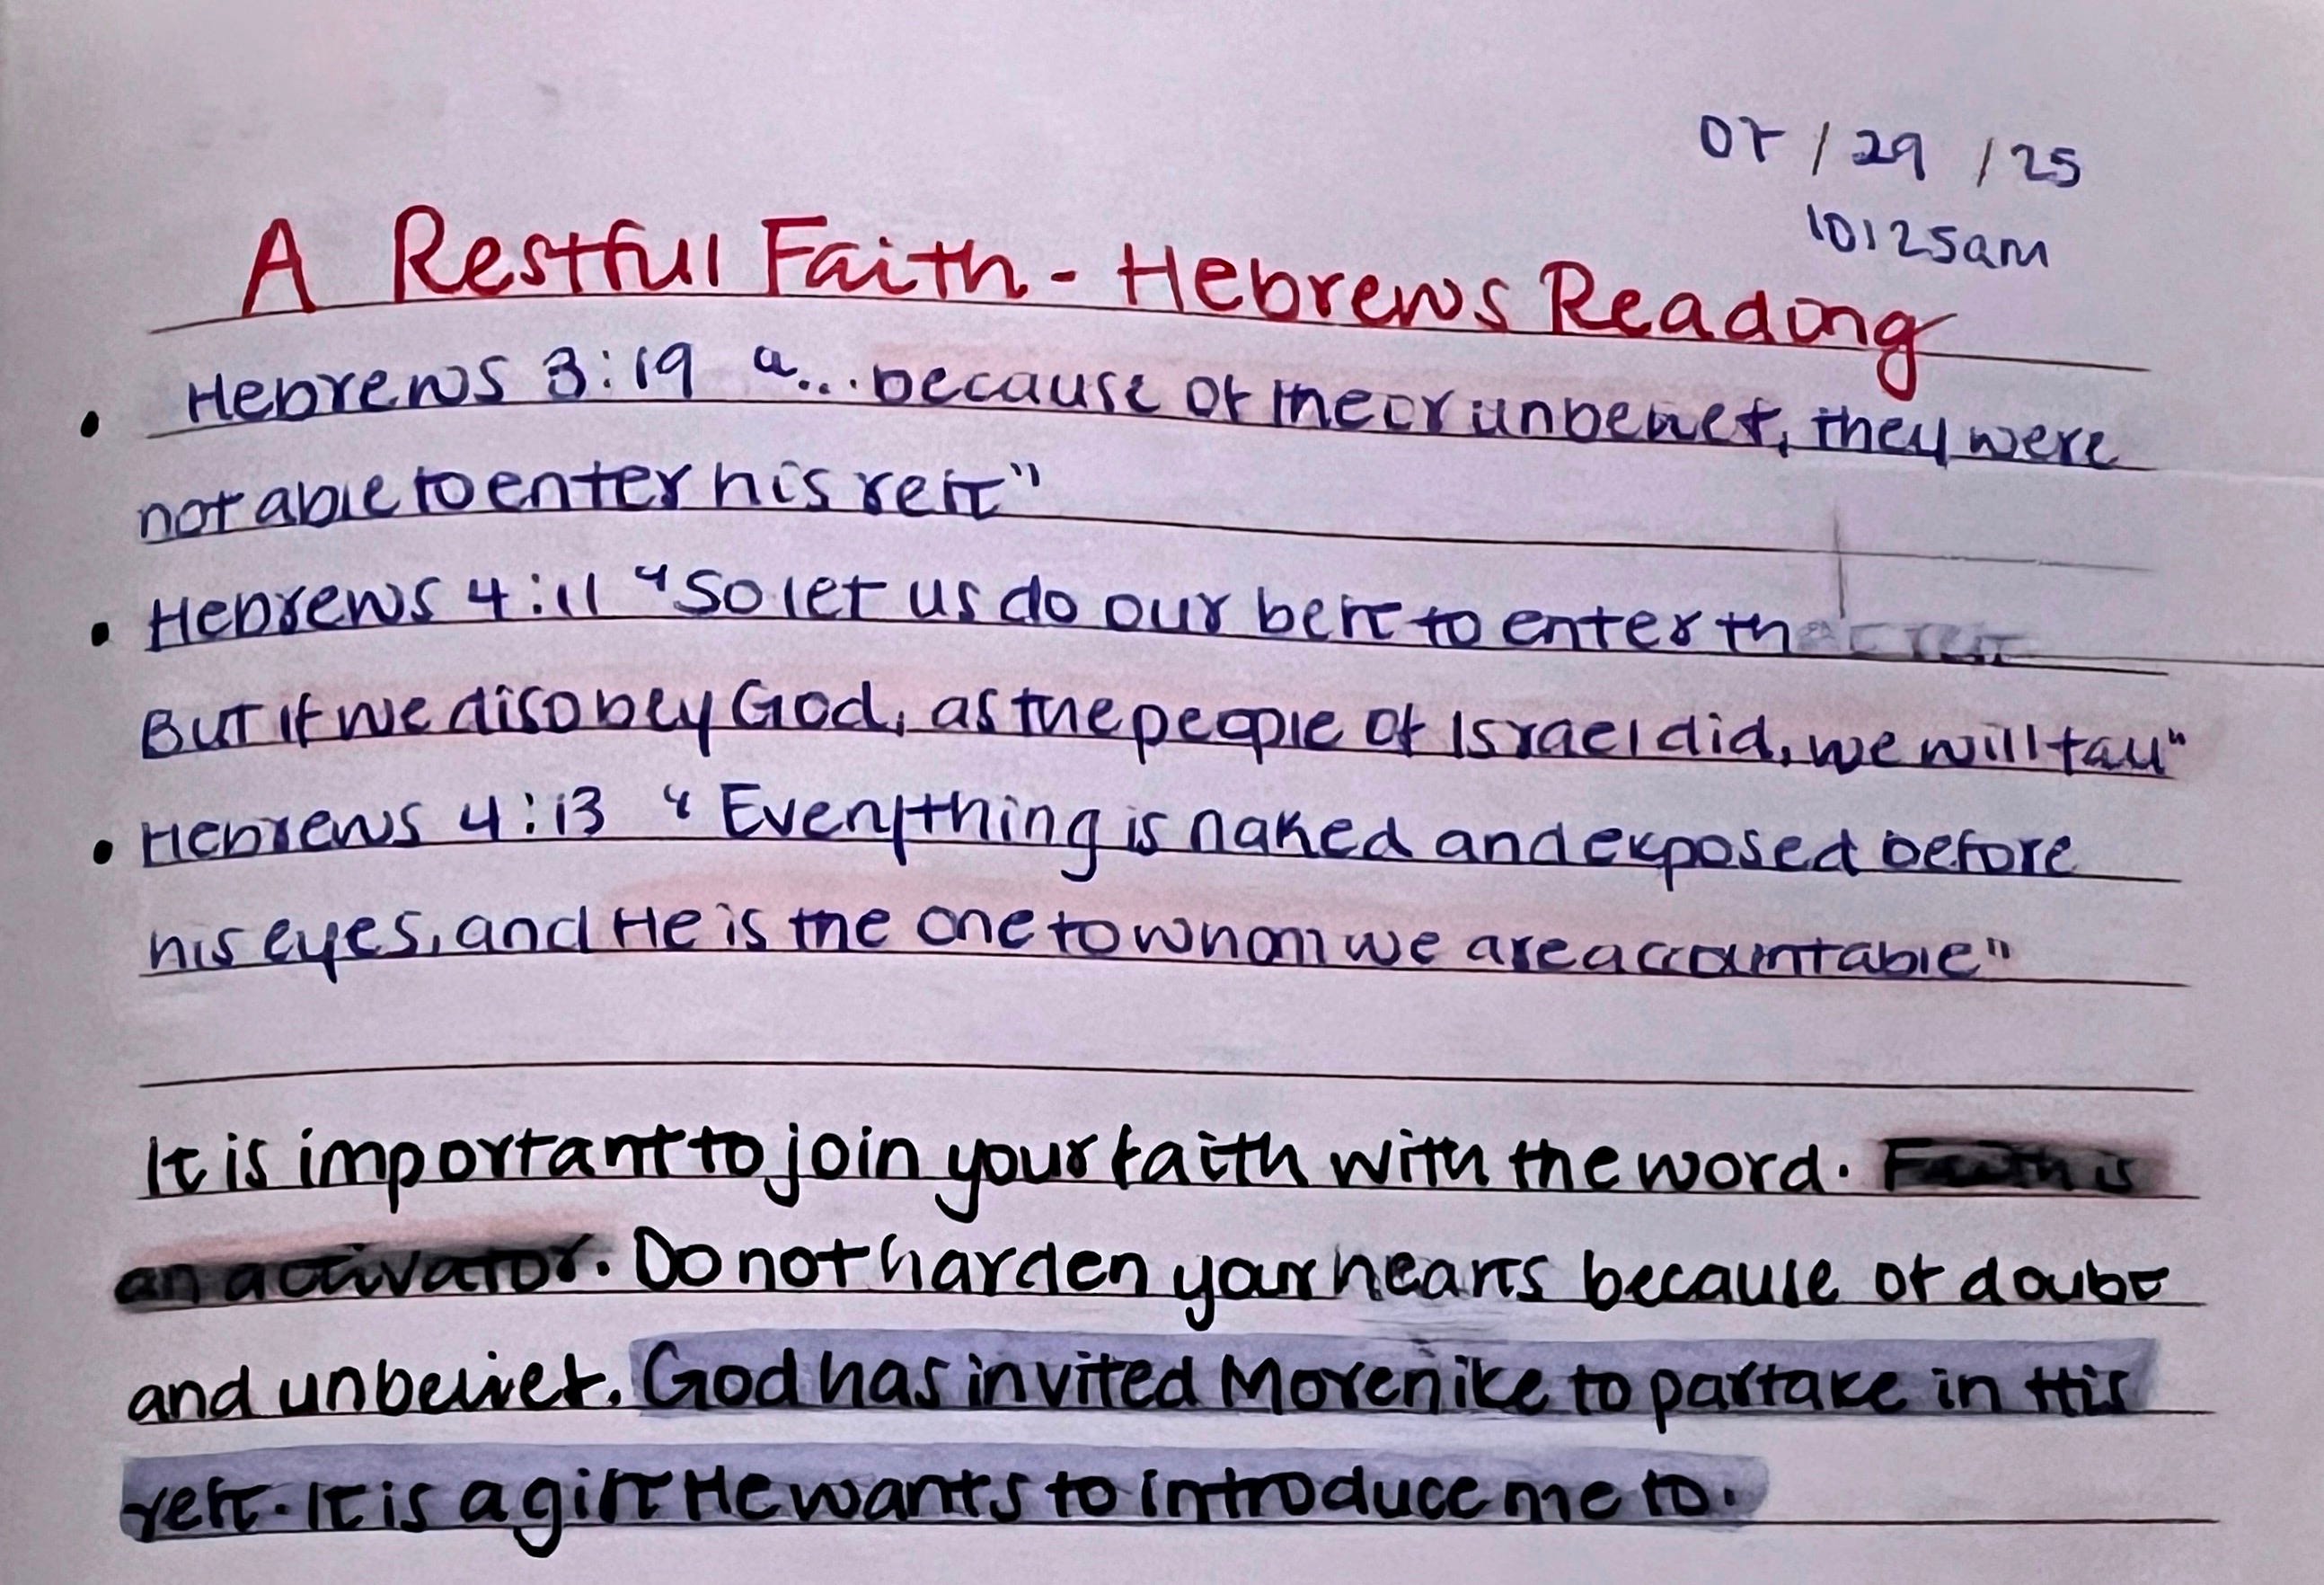 07/29/25
10:25am
A Restful Faith - Hebrews Reading
• Hebrews 3:19 "... because of their unbelief, they were
not able to enter his rest"
• Hebrews 4:11 "So let us do our best to enter that rest
But if we disobey God, as the people of Israel did, we will fall"
• Hebrews 4:13 "Everything is naked and exposed before
his eyes, and He is the one to whom we are accountable"
It is important to join your faith with the word. Faith is
an activator. Do not harden your hearts because of doubt
and unbelief. God has invited Morenike to partake in His
rest. It is a gift He wants to introduce me to.